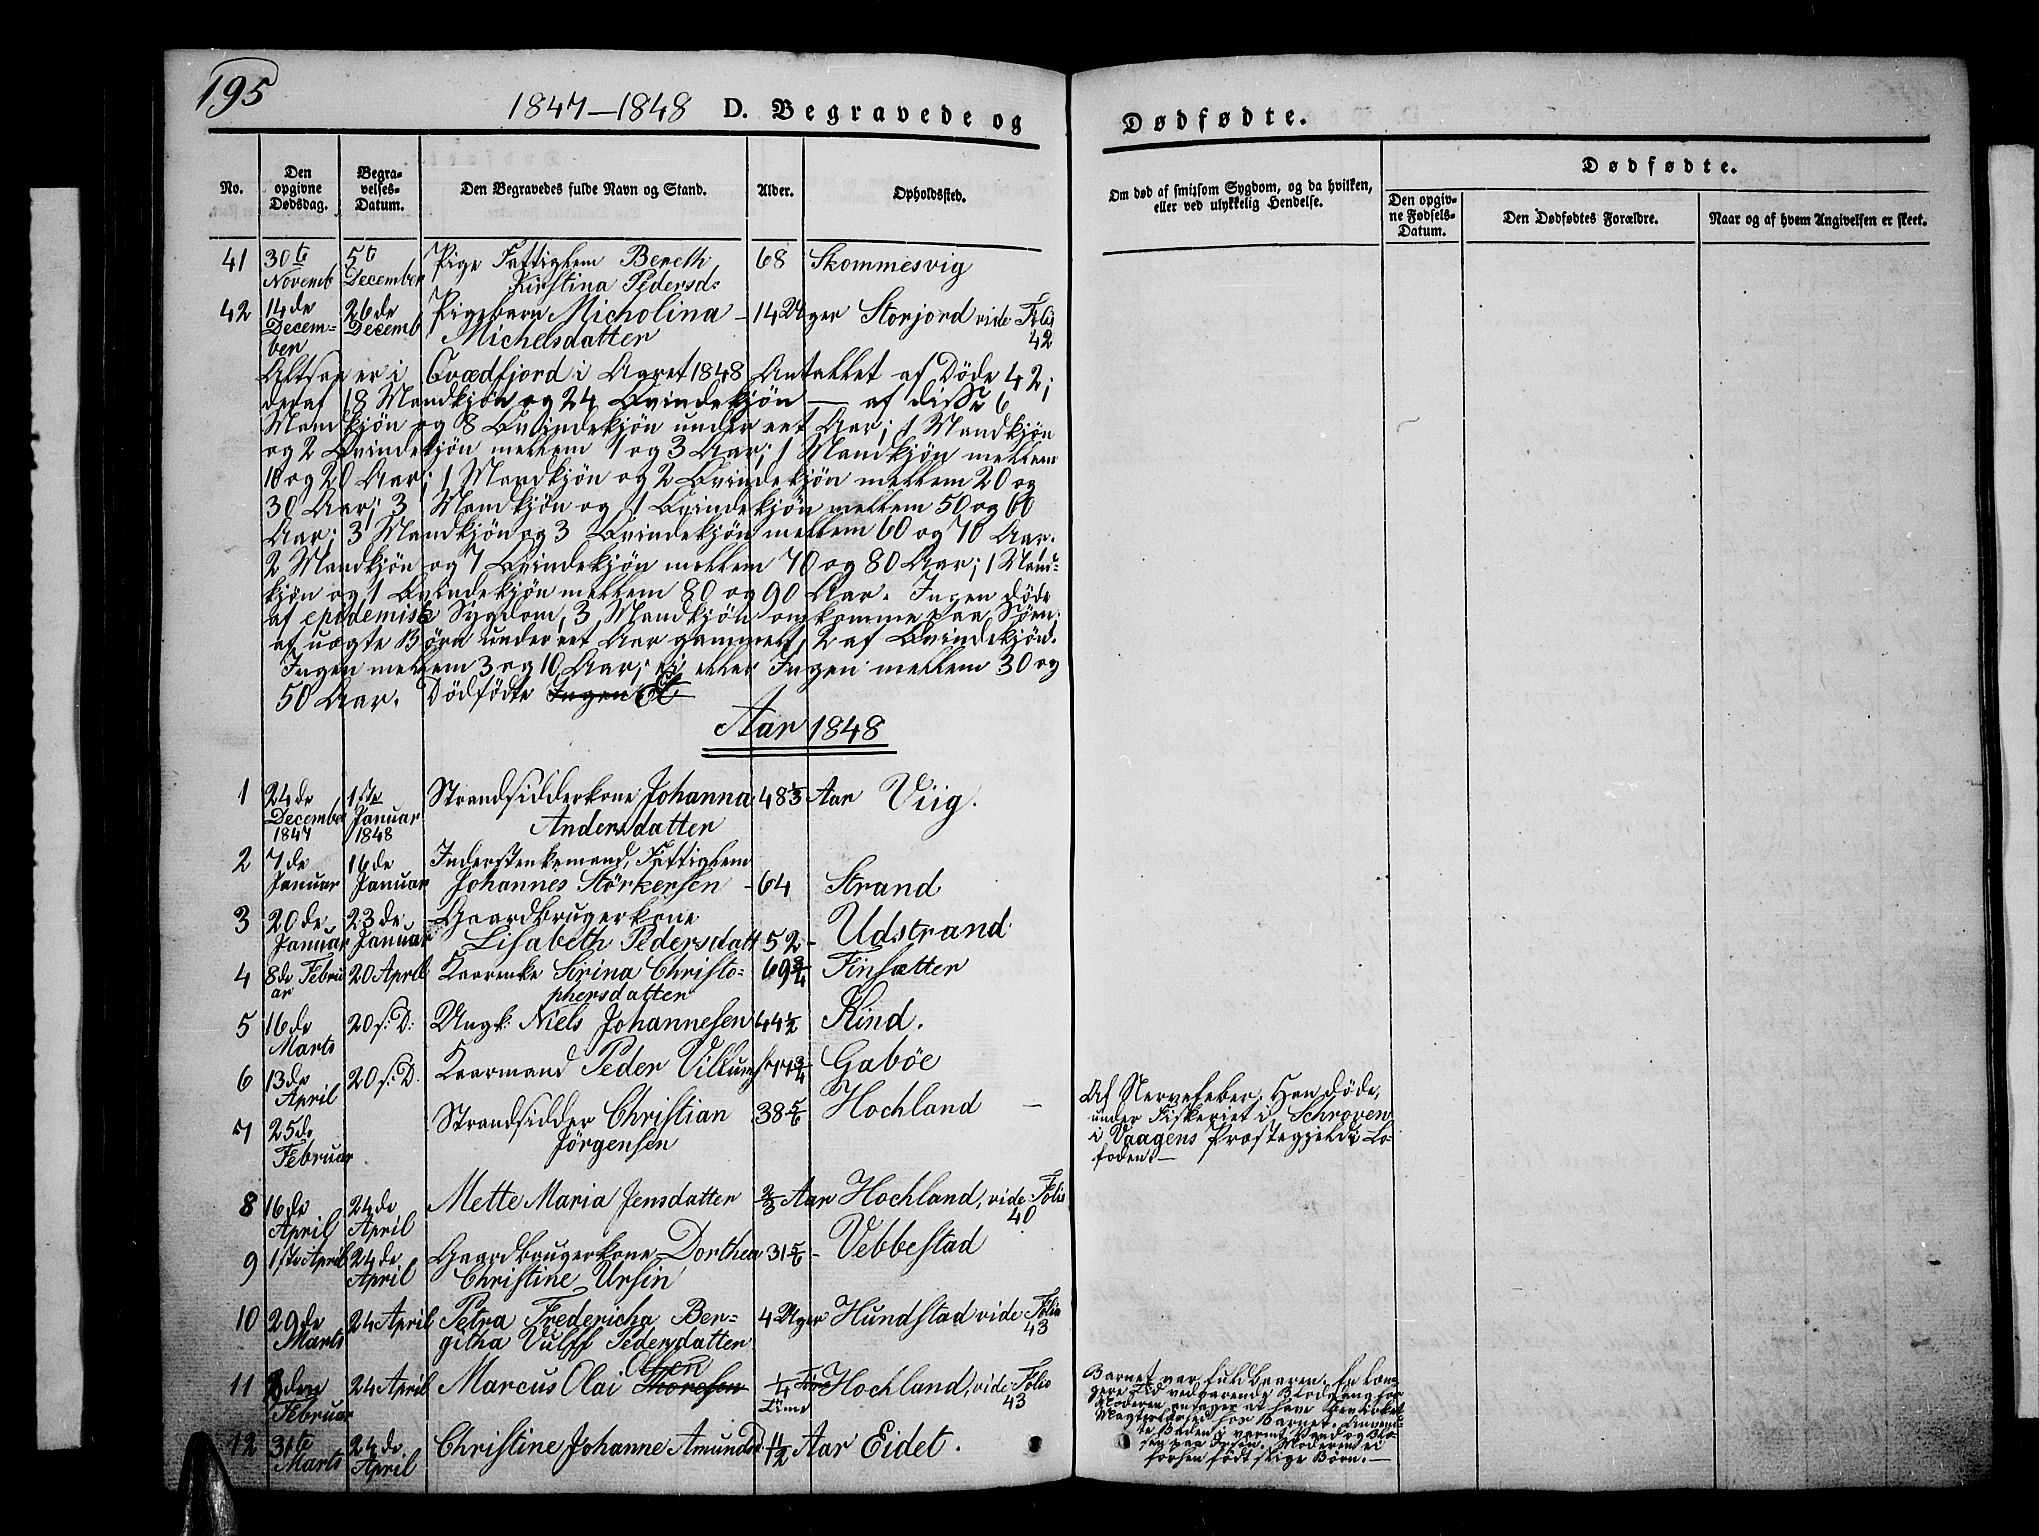 195
1847—1848 D. Begravede og Dødfødte.
No.
Den opgivne Dødsdag.
Begravelses-Datum.
Den Begravedes fulde Navn og Stand.
Alder.
Opholdssted.
Om død af smitsom Sygdom, og da hvilken,
eller ved ulykkelig Hendelse.
Dødfødte.
Den opgivne Fødsels-Datum.
Den Dødfødtes Forældre.
Naar og af hvem Angivelsen er skeet.
41 30te Novemb 5te December Pige Fattiglem Bereth 68 Skommesvig
Kirstina Pedersd:
42 14de December 26de Decemb Pigebarn Micholina 14 Uger Storjord vide Folio 42
Michelsdatter
Altsaa er i Qvædfjord i Aaret 1848 Antallet af Døde 42;
deraf 18 Mandkjøn og 24 Qvindekjøn — af disse 6
Mandkjøn og 8 Qvindekjøn under eet Aar; 1 Mandkjøn
og 2 Qvindekjøn mellem 1 og 3 Aar; 1 Mandkjøn mellem
10 og 20 Aar; 1 Mandkjøn og 2 Qvindekjøn mellem 20 og
30 Aar; 3 Mandkjøn og 1 Qvindekjøn mellem 50 og 60
Aar; 3 Mandkjøn og 3 Qvindekjøn mellem 60 og 70 Aar.
2 Mandkjøn og 7 Qvindekjøn mellem 70 og 80 Aar; 1 Mand-
kjøn og 1 Qvindekjøn mellem 80 og 90 Aar. Ingen døde
af epidemisk Sygdom, 3 Mandkjøn omkomme paa Søen;
af uægte Børn under eet Aar gammelt, 2 af Qvindekjøn.
Ingen mellem 3 og 10 Aar; ei eller Ingen mellem 30 og
50 Aar. Dödfödte Ingen Et
Aar 1848
1 24de December 1847 1ste Januar 1848 Strandsidderkone Johanna 48 1/3 Aar Viig.
Andersdatter
2 7de Januar 16de Januar Inderstenkemand, Fattiglem
Johannes Störkersen 64 Strand
3 20de Januar 23de Januar Gaardbrugerkone
Lisabeth Pedersdatt 52 Udstrand
4 8de Februar 20 April Kaarenke Sirina Christo- 69 3/4 Finsætter
phersdatter
5 16de Marts 20 s: D: Ungk: Niels Johannesen 44 1/2 Rind.
6 13de April 20 s: D. Kaarmand Peder Villums 77 3/4 Gaböe
7 25de Februar Strandsidder Christian 38 5/6 Hochland —
Jörgensen
Af Nervefeber. Han döde,
under Fiskeriet i Schroven
i Vaagens Præstegjeld i Lo-
foden.—
8 16de April 24de April Mette Maria Jensdatter 2/3 Aar Hochland, vide Folio 40
9 1ste April 24de April Gaardbrugerkone Dorthea 31 5/6 Vebbestad
Christine Ursin
10 29de Marts 24 April Petra Fredericha Ber- 4 Uger Hundstad vide Folio 43
githa Vulff Pedersdatter
Olsen
11 8den Februar 24 April Marcus Olai Thoresen 1/4 Time Hochland, vide Folio 43
Barnet var fuldbaaren. En læn-
gere Tid vedvarende Blodgang hos
Moderen antages at have bevirket
Magtesløshed hos Barnet. Anvend-
te Baden i varmt Vand og Blæ-
sen paa Issen. Moderen ei
forhen födt slige Börn.—
12 31te Marts 24de April Christine Johanne Amundsd 1 1/2 Aar Eidet.